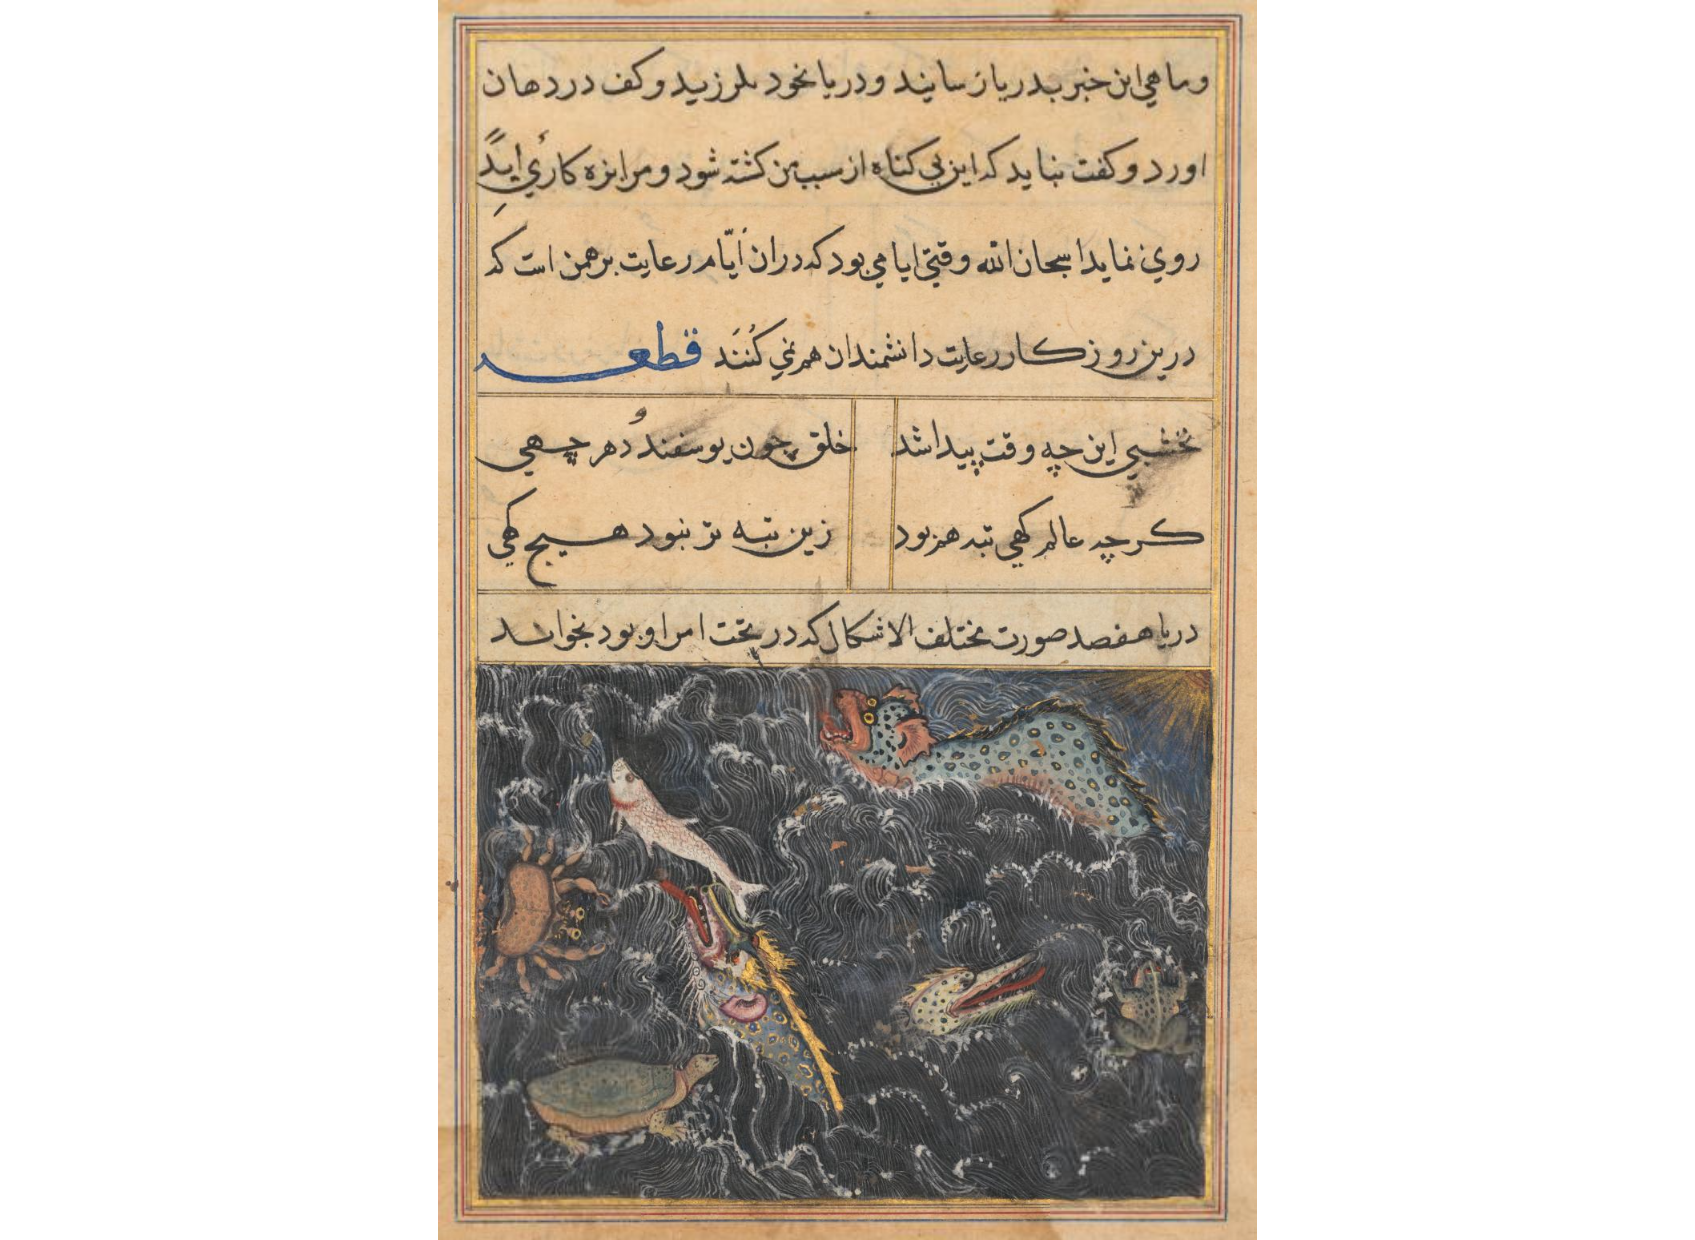 وماهي اين خبر بدريا رسانيد و دريا بخود بلرزيد و كف در دهان
اورد و كفت نبايد كه اين بي كناه از سبب من كشته شود و مرا بزه كاري ابد
روي نمايد سبحان الله وقتي ايامي بود كه در ان أيّام رعايت برهمن است كه
درين روزكار رعايت دانشمندان هم نمي كُنَند قطعه
نخشبي اين چه وقت پيدا شد خلق چون يوسفند و دهر چهي
كرچه عالم كهي تبه هم بود زين تبه تر نبود هيچ كهي
دريا هفصد صورت مختلف الاشكال كه در تحت امر او بود بخواند